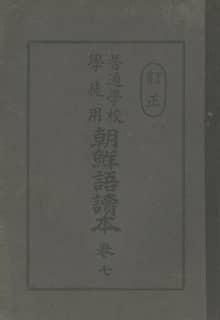 訂正
普通學校
學徒用
朝鮮語讀本
卷七